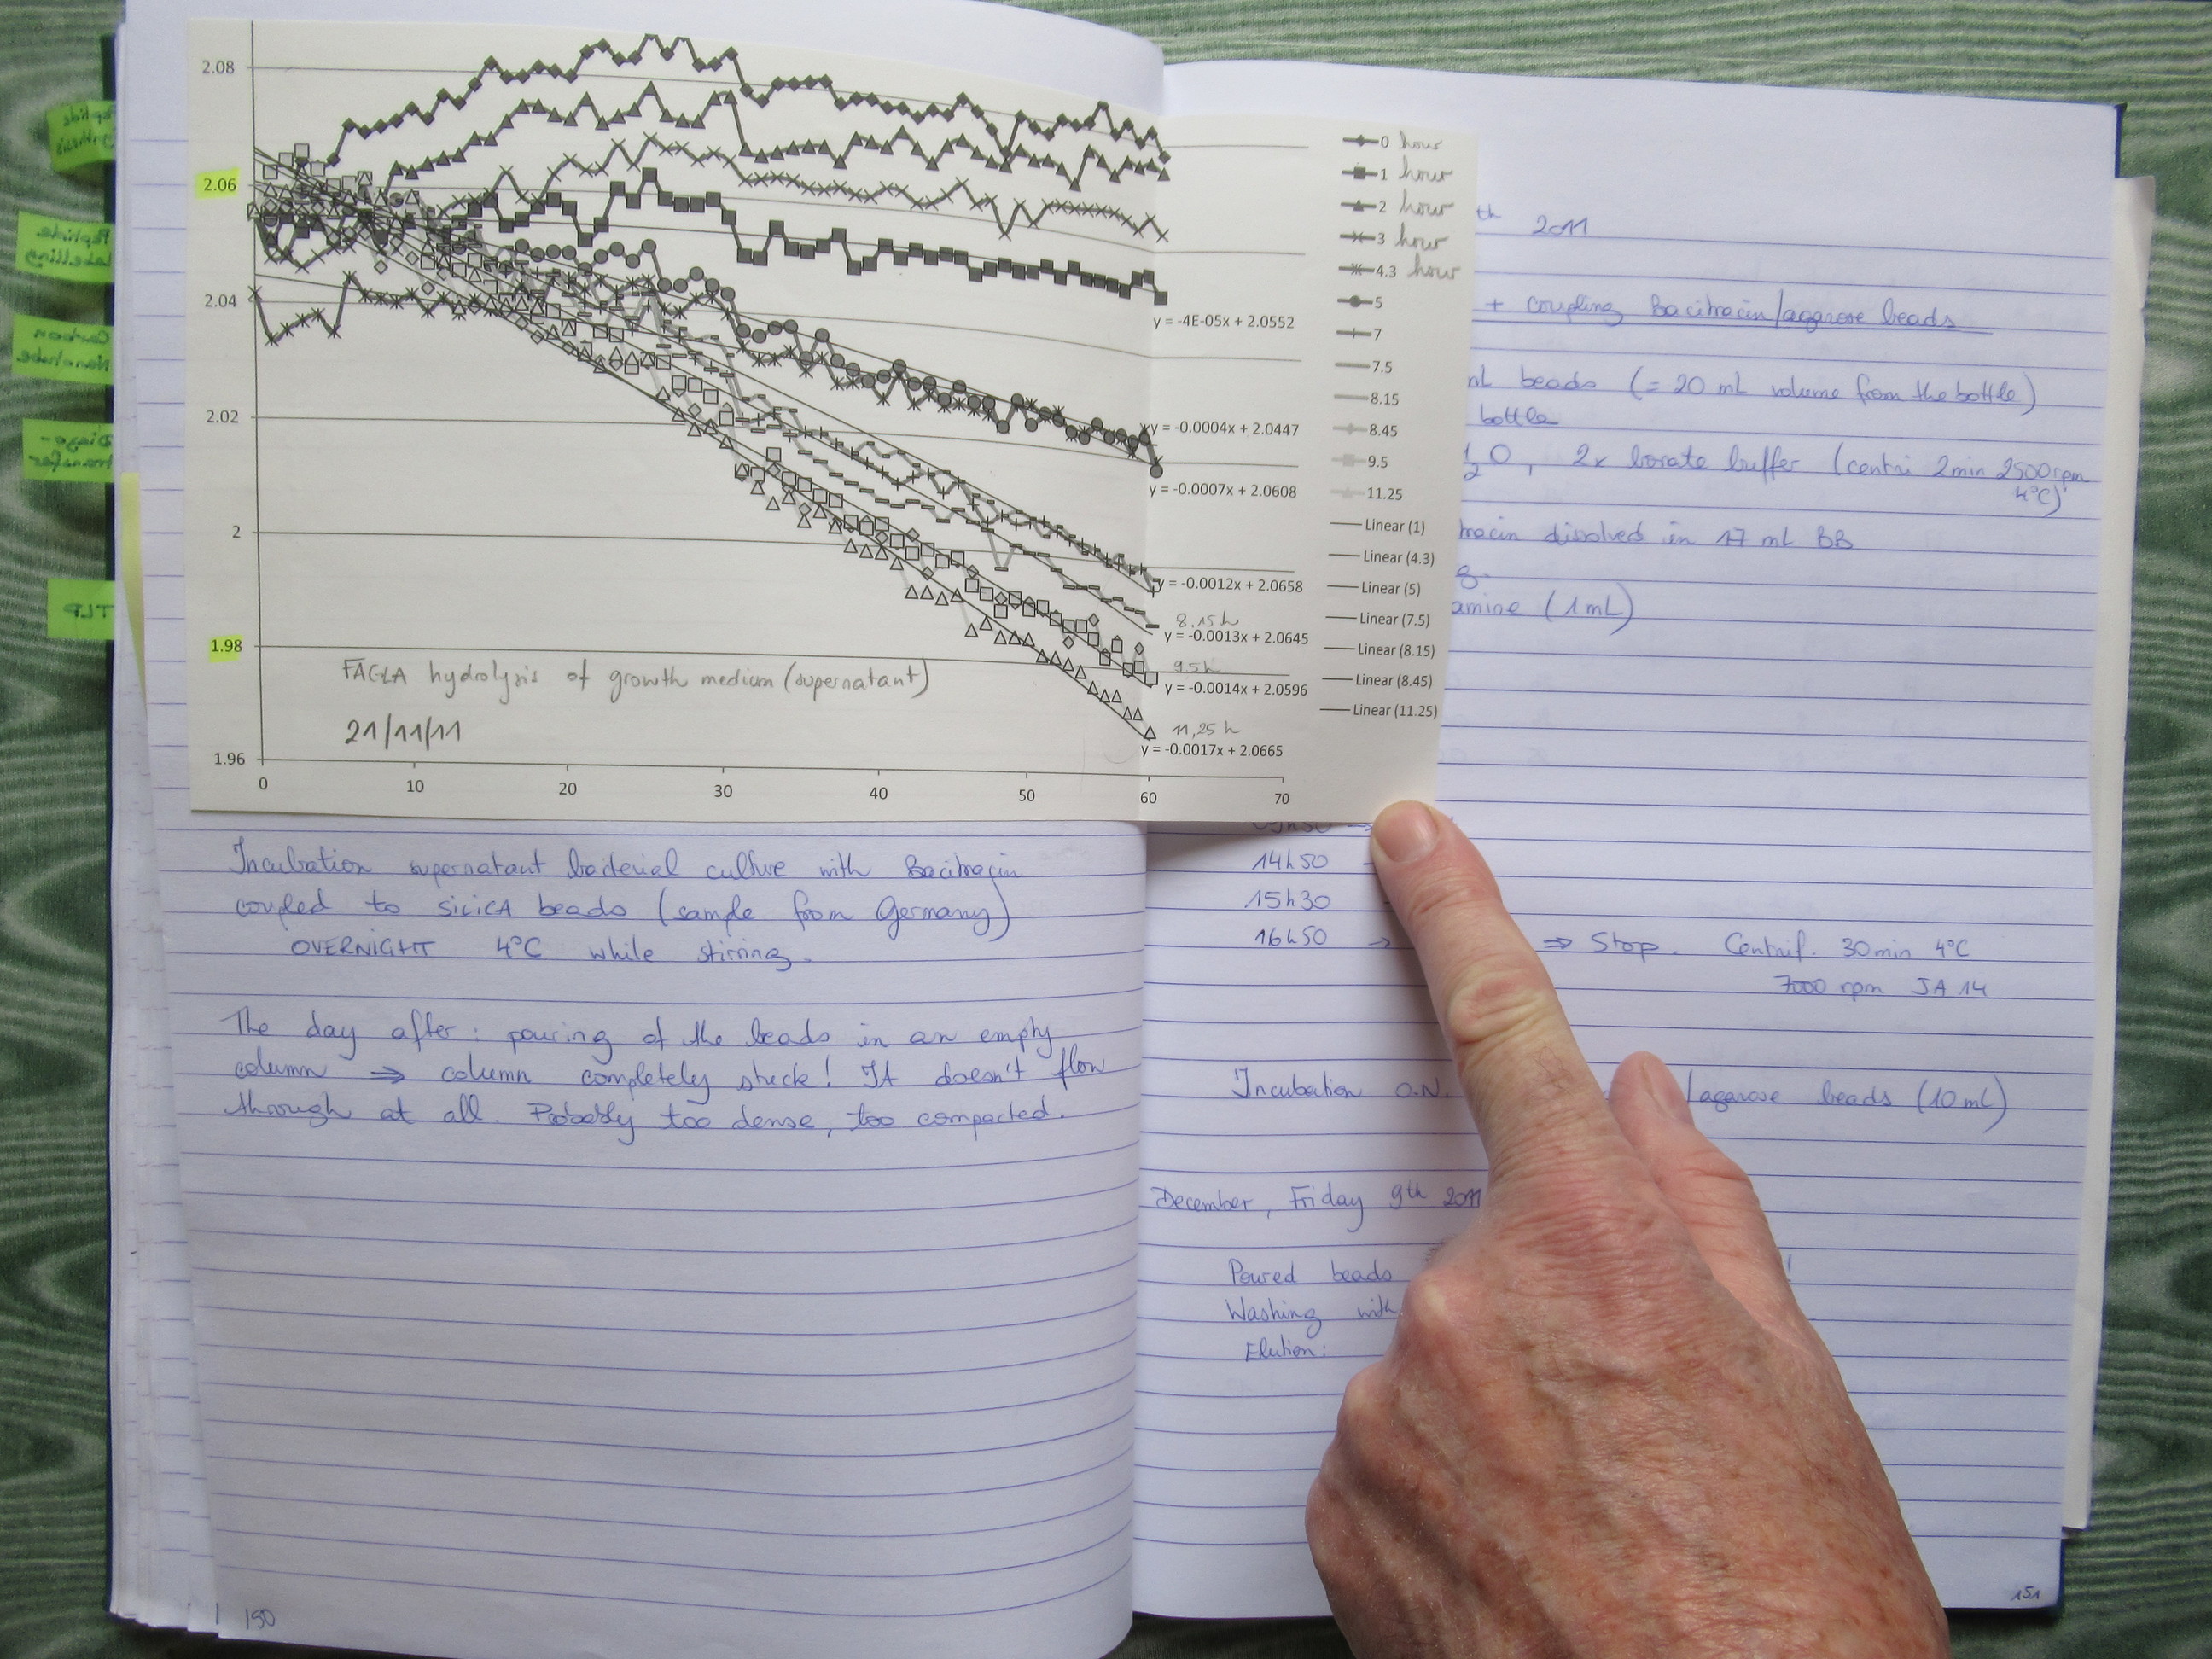 2.08
2.06
2.04
2.02
2
1.98
1.96
0
10
20
30
40
50
60
70
0 hour
1 hour
2 hour
3 hour
4.3 hour
5
7
7.5
8.15
8.45
9.5
11.25
Linear (1)
Linear (4.3)
Linear (5)
Linear (7.5)
Linear (8.15)
Linear (8.45)
Linear (11.25)
y = -4E-05x + 2.0552
y = -0.0004x + 2.0447
y = -0.0007x + 2.0608
y = -0.0012x + 2.0658
8.15h
y = -0.0013x + 2.0645
9.5h
y = -0.0014x + 2.0596
11,25 h
y = -0.0017x + 2.0665
FAGLA hydrolysis of growth medium (supernatant)
21/11/11
Incubation supernatant bacterial culture with Bacitracin
coupled to SILICA beads (sample from Germany)
OVERNIGHT 4°C while stirring.
The day after: pouring of the beads in an empty
column ⇒ column completely stuck! It doesn't flow
through at all. Probably too dense, too compacted.
150
th 2011
+ coupling Bacitracin/agarose beads
mL beads (= 20 mL volume from the bottle)
bottle
2O, 2x borate buffer (centri 2min 2500rpm
4°C)
racin dissolved in 17 mL BB
g.
amine (1mL)
14h50
15h30
16h50 → ⇒ Stop. Centrif. 30min 4°C
7000 rpm JA 14
Incubation O.N. /agarose beads (10 mL)
December, Friday 9th 2011
Poured beads !
Washing with
Elution:
151
Peptide
Synthesis
Peptide
Labelling
Carbon
Nanotube
Diazo-
transfer
TLP